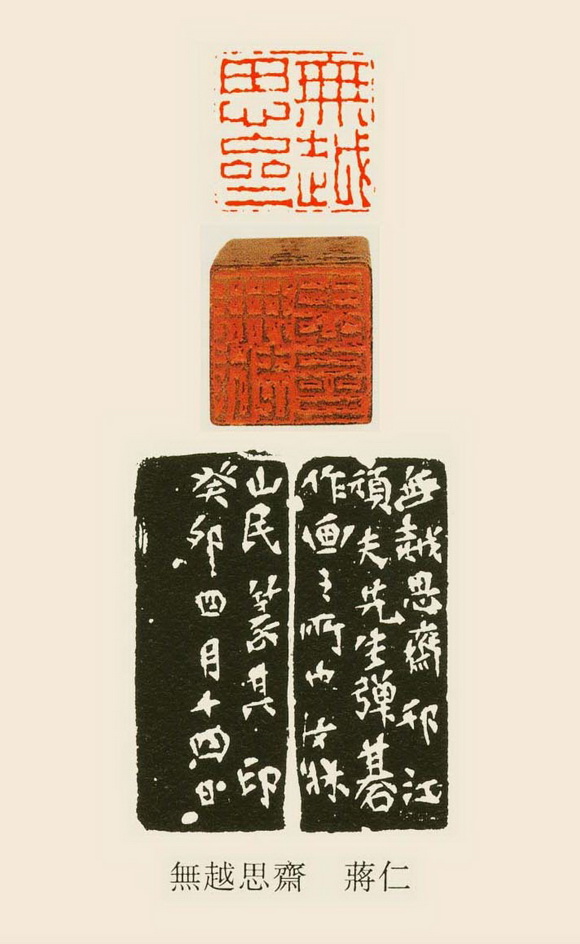 無越
思齋
無越思齋邗江
頑夫先生彈碁
作画之所也女牀
山民篆其印
癸卯四月十四日
無越思齋 蔣仁